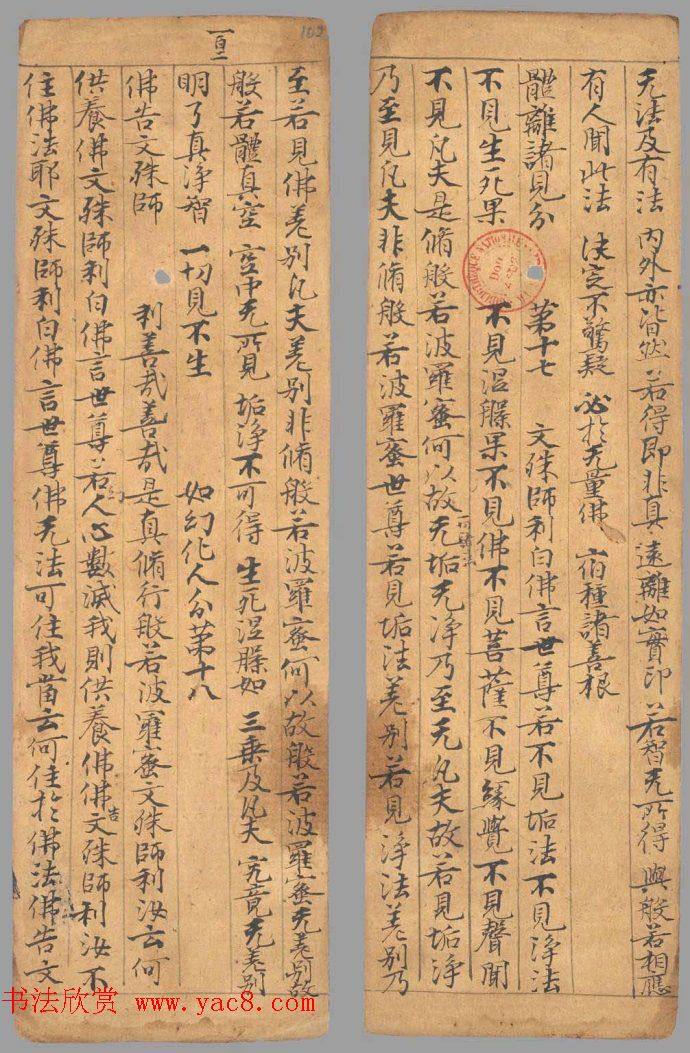 无法及有法 内外亦皆然 若得即非真 遠離如實印 若智无所得 與般若相應
有人聞此法 决定不驚疑 必於无量佛 宿種諸善根
體離諸見分 第十七 文殊師利白佛言世尊若不見垢法不見淨法
不見生死果 不見涅槃果不見佛不見菩薩不見緣覺不見聲聞
不見凡夫是脩般若波羅蜜何以故无垢无淨乃至无凡夫故若見垢淨
乃至見凡夫非脩般若波羅蜜世尊若見垢法差別若見淨法差別乃
百二
103
至若見佛差別凡夫差別非脩般若波羅蜜何以故般若波羅蜜无差別故
般若體真空 空中无所見 垢淨不可得 生死涅槃如 三乘及凡夫 究竟无差別
明了真淨智 一切見不生 如幻化人分第十八
佛告文殊師 利善哉善哉是真脩行般若波羅蜜文殊師利汝云何
供養佛文殊師利白佛言世尊若幻人心數滅我則供養佛佛告文殊師利汝不
住佛法耶文殊師利白佛言世尊佛无法可住我當云何住於佛法佛告文
书法欣赏 www.yac8.com